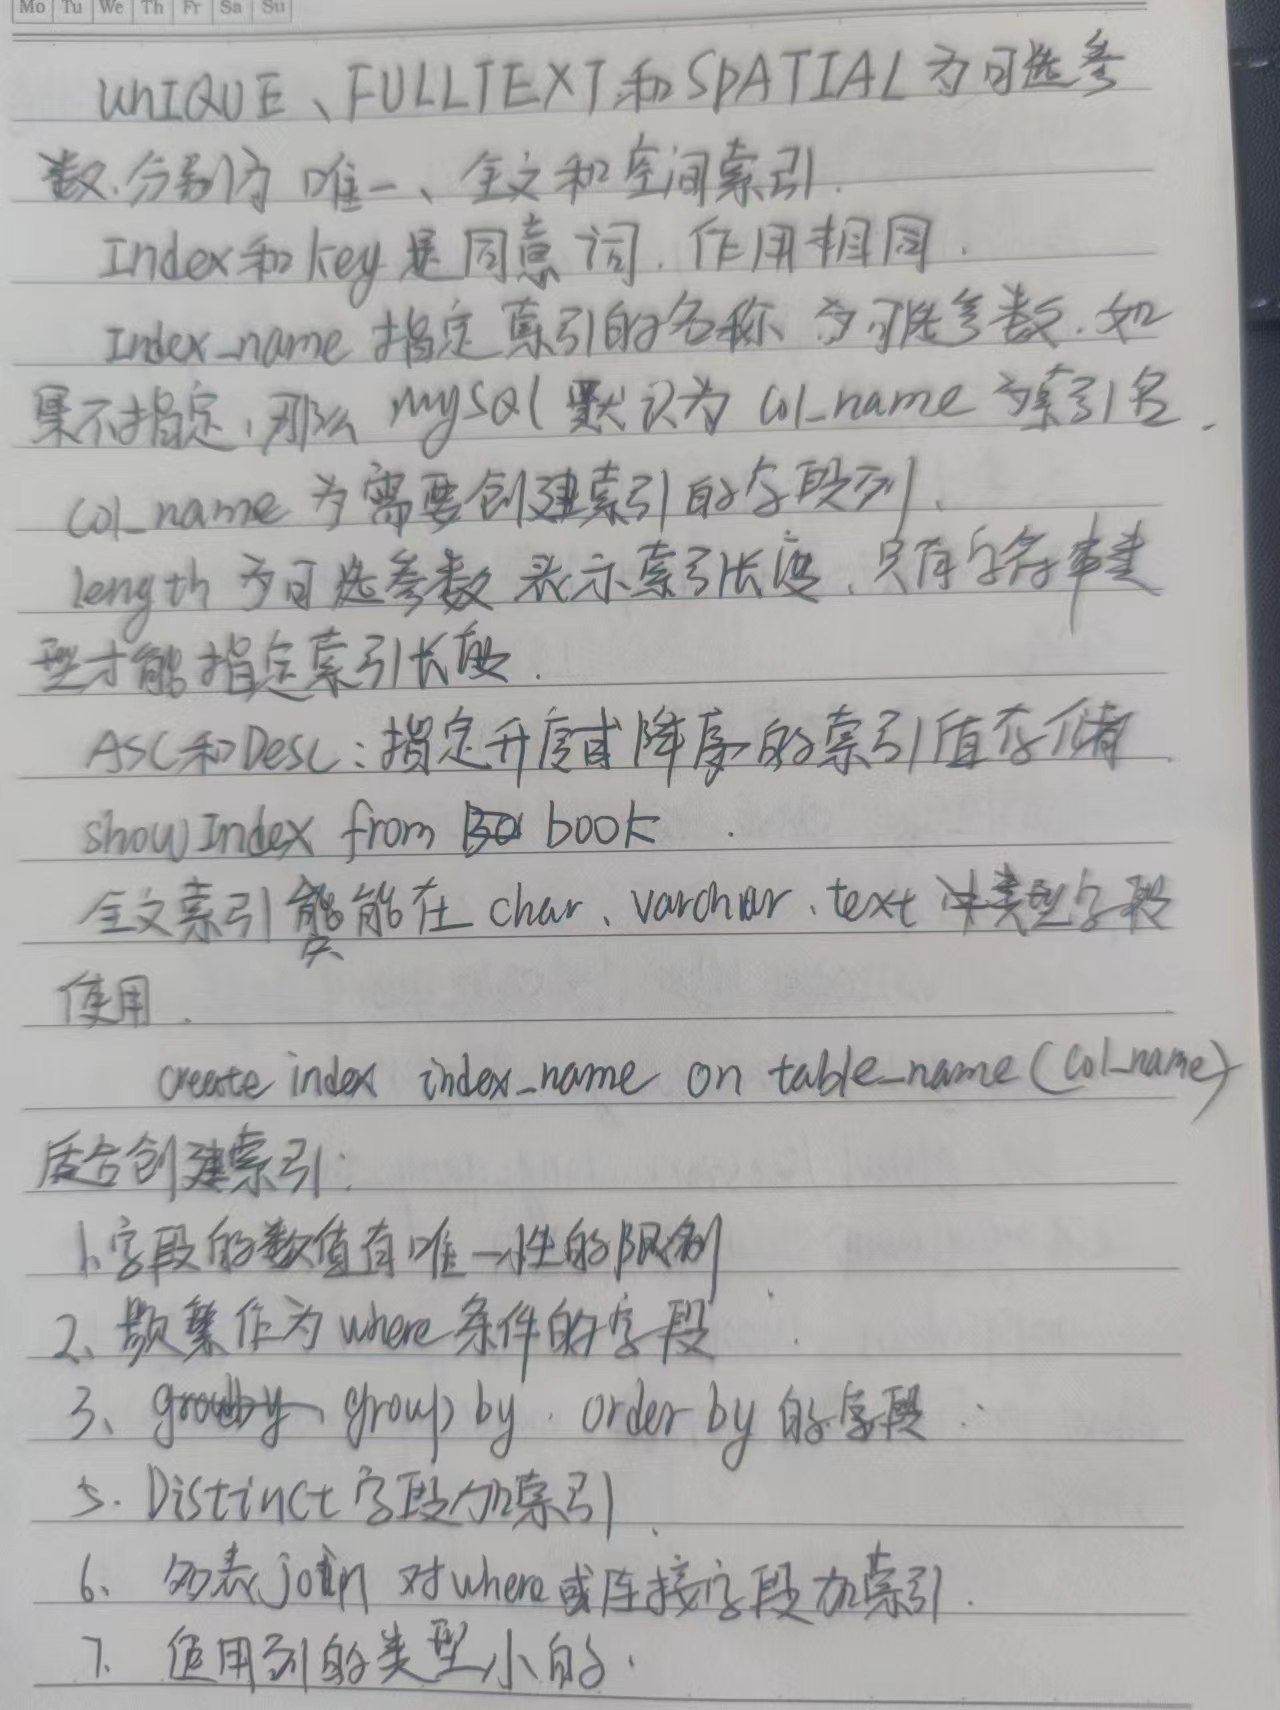 Mo Tu We Th Fr Sa Su
UNIQUE、FULLTEXT和SPATIAL为可选参
数.分别为唯一、全文和空间索引.
Index和key是同意词.作用相同.
Index_name指定索引的名称为可选参数.如
果不指定,那么MySQL默认为col_name为索引名.
col_name为需要创建索引的字段列.
length为可选参数表示索引长度.只有字符串类
型才能指定索引长度.
ASC和Desc:指定升序或降序的索引值存储
show Index from book.
全文索引只能在char、varchar、text类型字段
使用.
create index index_name on table_name(col_name)
适合创建索引:
1、字段的数值有唯一性的限制
2、频繁作为where条件的字段
3、group by.order by的字段
5.Distinct字段加索引.
6、多表join对where或连接字段加索引.
7.使用列的类型小的.